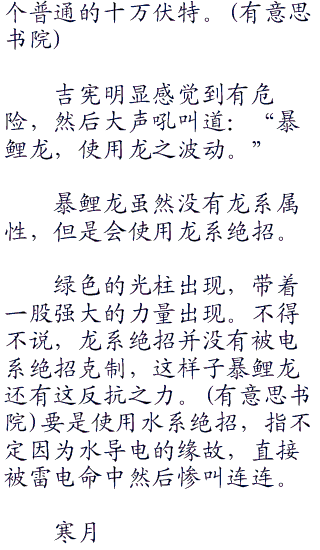 个普通的十万伏特。(有意思
书院)
吉宪明显感觉到有危
险，然后大声吼叫道：“暴
鲤龙，使用龙之波动。”
暴鲤龙虽然没有龙系属
性，但是会使用龙系绝招。
绿色的光柱出现，带着
一股强大的力量出现。不得
不说，龙系绝招并没有被电
系绝招克制，这样子暴鲤龙
还有这反抗之力。(有意思书
院)要是使用水系绝招，指不
定因为水导电的缘故，直接
被雷电命中然后惨叫连连。
寒月